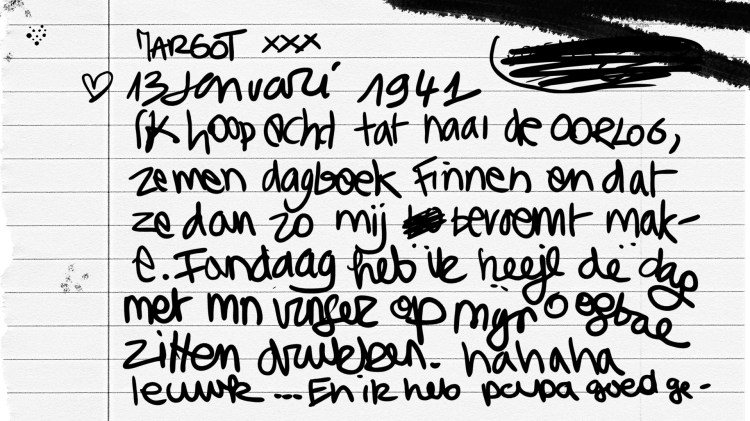 MARGOT xxx
♡ 13 Januari 1941
Ik hoop echt tat naal de OORLOG,
ze men dagboek finnen en dat
ze dan zo mij beroemt mak-
e. Fandaag heb ik heejl de dag
met mn vinger op mijn oegbae
zitten drukken. hahaha
leuwk ... En ik heb papa goed ge-